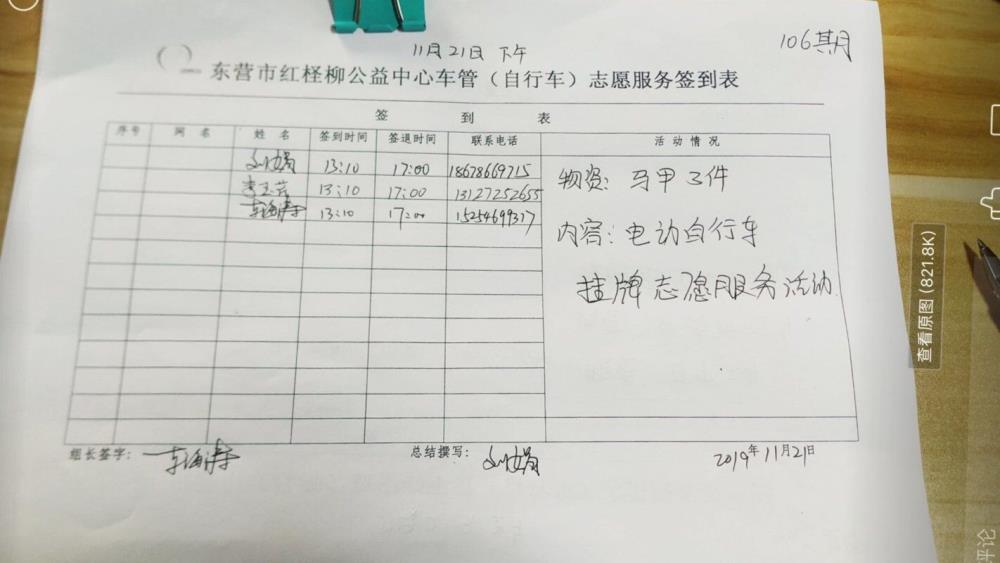 106期
11月21日 下午
东营市红柽柳公益中心车管（自行车）志愿服务签到表
签 到 表
序号 网名 姓名 签到时间 签退时间 联系电话 活动情况
13:10 17:00 18678669715
13:10 17:00 13127252655
13:10 17:00 15254699317
物资: 马甲3件
内容: 电动自行车
挂牌志愿服务活动
组长签字:
总结撰写:
2019年11月21日
查看原图 (821.8K)
评论